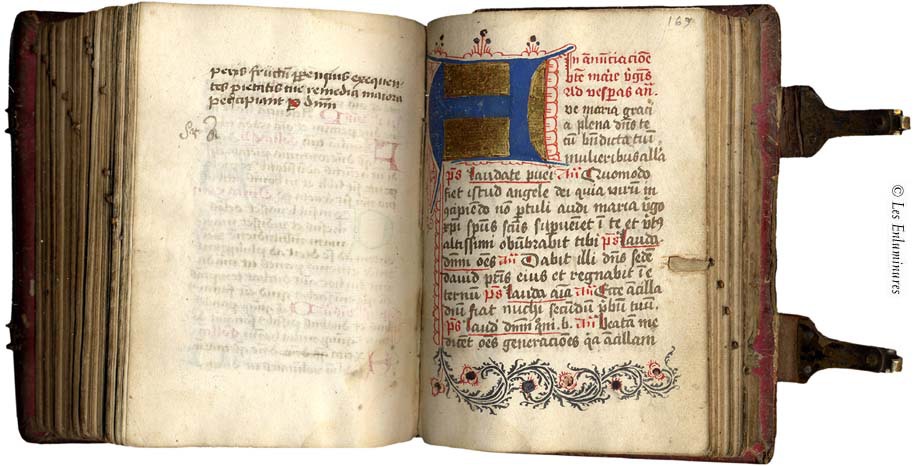 petis fructum perengius exequen
tes pietatis tue remedia maiora
percipiant p dnm
169
In annūciacōe
bte marie v̄gīs
Ad vesp̄as añ.
A
ve maria graci
a plena dn̄s te
cū bn̄dicta tu ī
mulieribus alla
ps̄ Laudate pueri añ Quomodo
fiet istud angele dei quia virū in
ꝯcipiēdo nō ꝑtuli audi maria v̄go
xp̄i spūs scūs suꝑueīet ī te et v̄t9
altissimi obūbrabit tibi ps̄ Lauda
dn̄m oēs añ Dabit illi dn̄s sedē
dauid pr̄is eius et regnabit ī e
ternū ps̄ Lauda aīa añ Ecce ācilla
dn̄i fiat michi secūdū v̄bū tuū
ps̄ Laud dn̄m qm̄. b. añ Beata me
dicēt oēs generacōes q̄a ācillam
© Les Enluminures